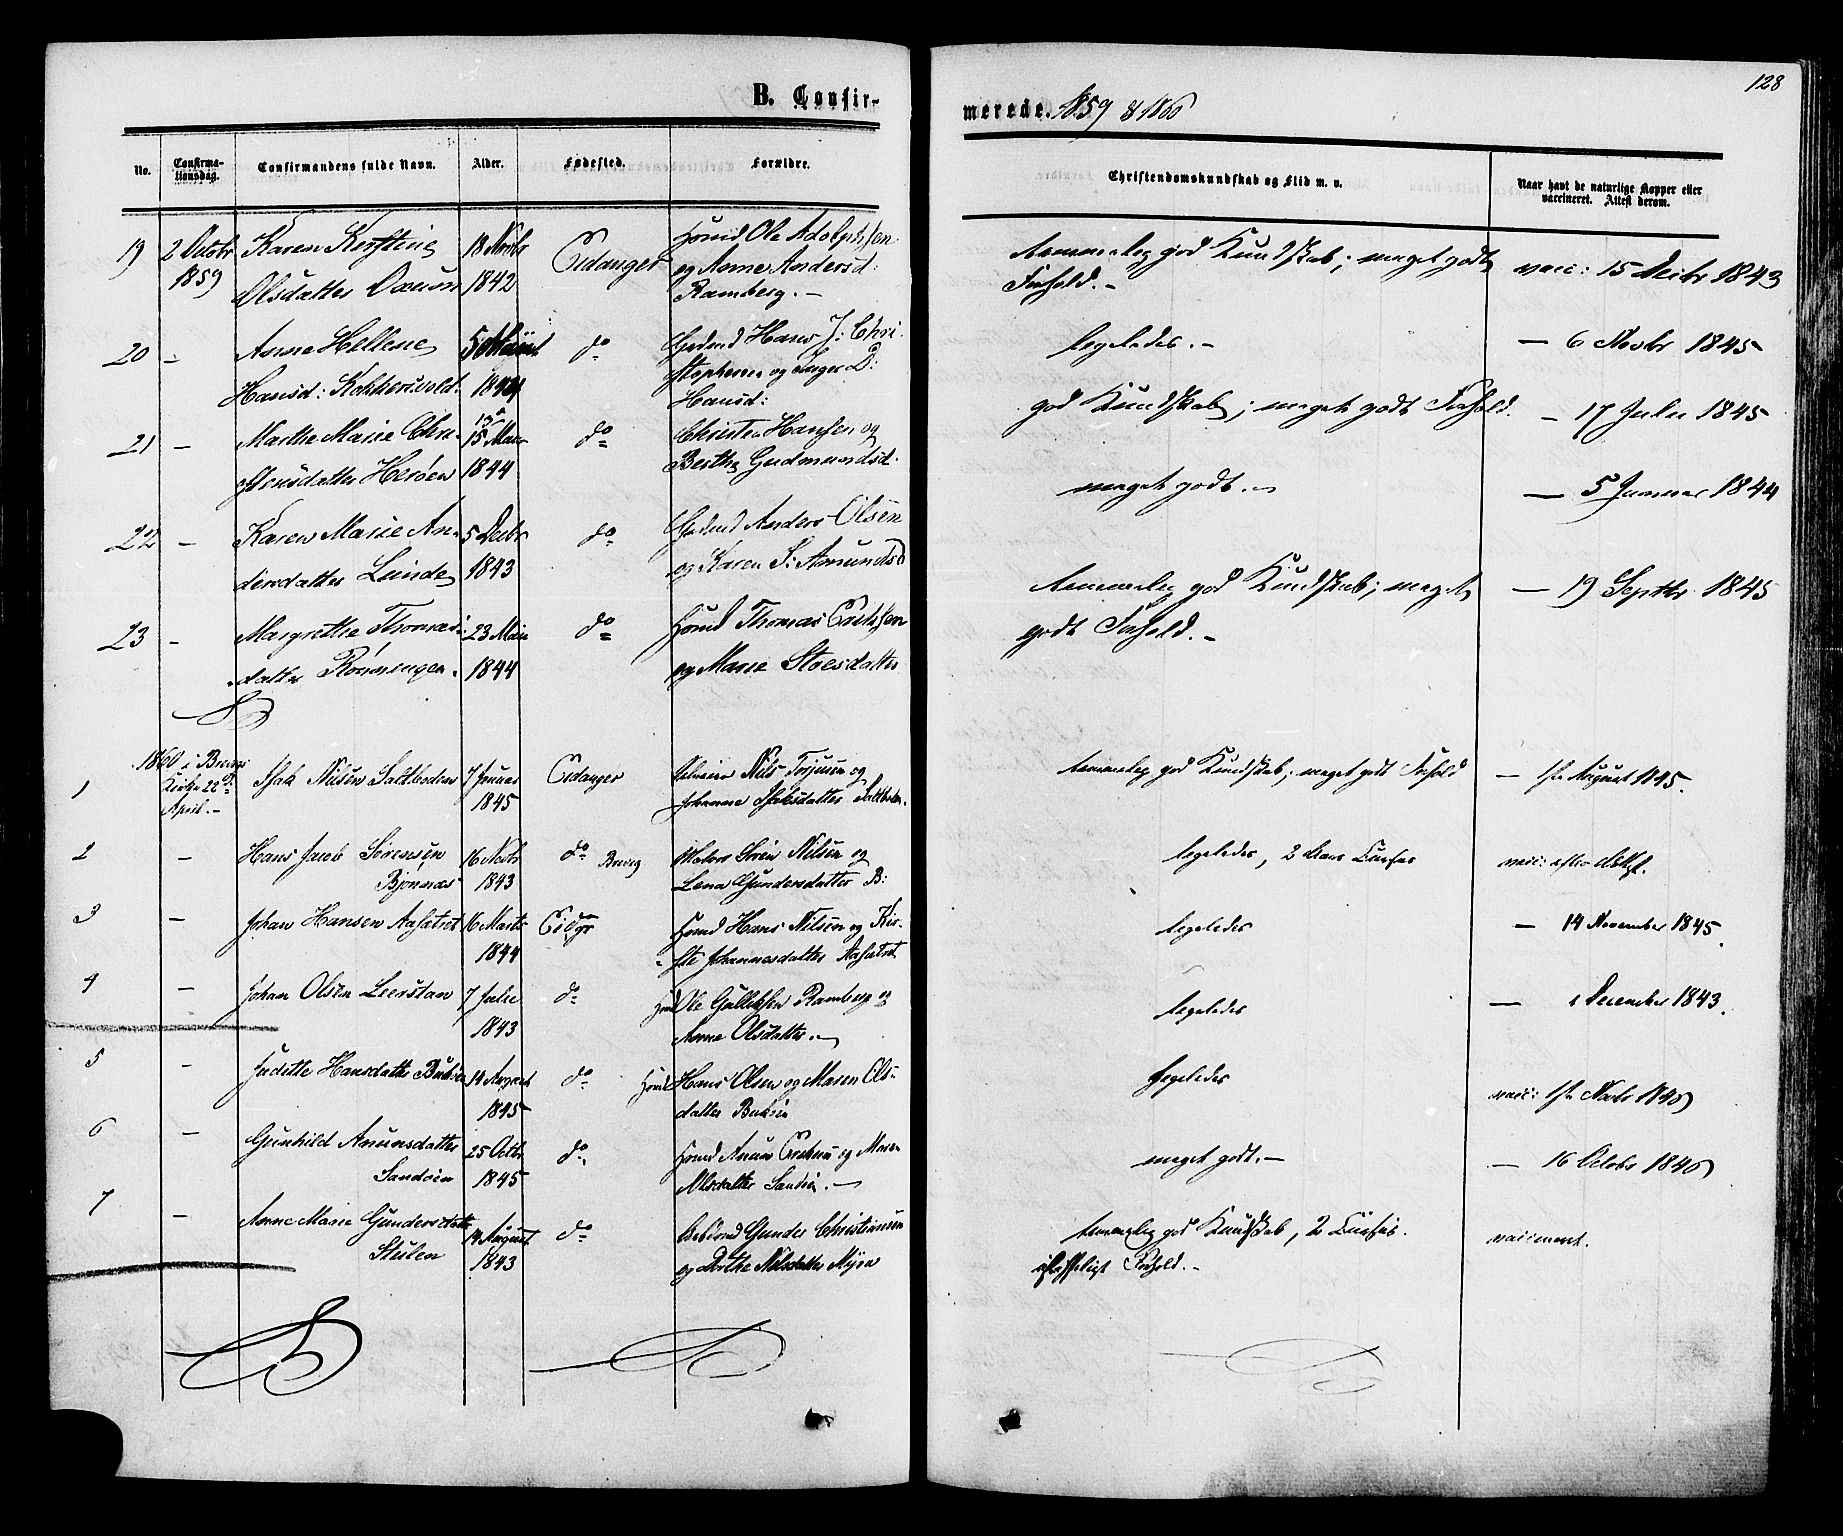 128
B. Confir-
merede. 1859 & 1860
No.
Confirma-
tionsdag.
Confirmandens fulde Navn.
Alder.
Fødested.
Forældre.
Christendomskundskab og Flid m. v.
Naar havt de naturlige Kopper eller
vaccineret. Attest derom.
19 2 Octobr Karen Kirstine 18 Novbr Eidanger Hmd Ole Adolphsen
1859 Olsdatter 1842 og Anne Andersd:
Ramberg. –
temmelig god Kundskab; meget godt
Forhold. –
vacc: 15 Decbr 1843
20 – Anne Hellene 5 do Gdmd Hans J: Chri-
Hansd: stophersen og Inger D:
Hansd:
ligeledes. –
– 6 Novbr 1845
21 – Marthe Marie Chri- 15 Mai do Christen Hansen og
stensdatter Herøen 1844 Berthe Gudmundsd.
god Kundskab; meget godt Forhold.
– 17 Juli 1845
22 – Karen Marie An- 5 Decbr do Gdmd Anders Olsen
dersdatter Lunde 1843 og Karen S: Amundsd
meget godt. –
– 5 Januar 1844
23 – Margrethe Thomas- 23 Mai do Hmd Thomas Erichsen
datter 1844 og Marie
temmelig god Kundskab; meget
godt Forhold. –
– 19 Septbr. 1845
1860 i Brevigs
Kirke 22de
April. –
1 Isak Nilsen Saltboden 7 Januar Eidanger Nils Torjusen og
1845 Johanne Isaksdatter
temmelig god Kundskab; meget godt Forhold
– August 1845.
2 – Hans Jacob Sørensen 16 Novbr do Brevig Søren Nilsen og
Bjønnæs 1843 Lena Gundersdatter B:
ligeledes, 2 Cursus
vacc: efter
3 – Johan Hansen 16 Marts Eidgr Hmd Hans Nilsen og Kir-
1844 ste Johannesdatter
ligeledes
– 14 November 1845.
4 – Johan Olsen Leerstan 7 Julie do Hmd Ole Gulliksen Ramberg og
1843 Anne Olsdatter. –
ligeledes
– December 1843.
5 – Judithe Hansdatter 14 August do Hmd Hans Olsen og Maren Ols-
1845 datter
ligeledes
vacc: Novbr
6 – Gunhild Anunsdatter 25 Octbr do Hmd Anun og Maren
Sandøen 1845 Nilsdatter Sandøen. –
meget godt. –
– 16 Octobr
7 – Anne Marie Gundersdatter 14 August do Gunder Christensen
Stulen 1843 og Dorthe Nilsdatter Myra
temmelig god Kundskab, 2 Cursus.
Forhold. –
vaccineret.